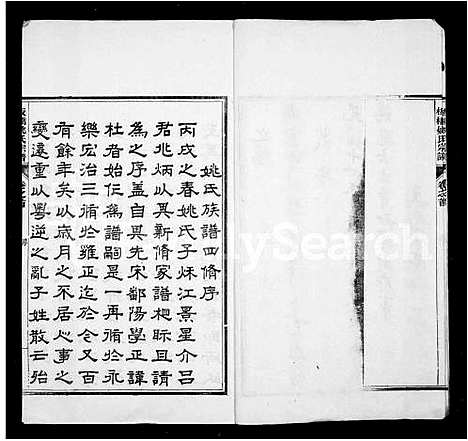 姚氏族譜四脩序
丙戌之春姚氏子秌江景星介吕
君兆炳以其新脩家譜梔眎且請
為之序蓋自其先宋鄱陽學正諱
杜者始仁為譜嗣是一再脩於永
樂宏治三脩於雍正迄於今又百
有餘年矣以歲月之不居人事之
變遷重以粵逆之亂子姓散亡殆
FamilySearch